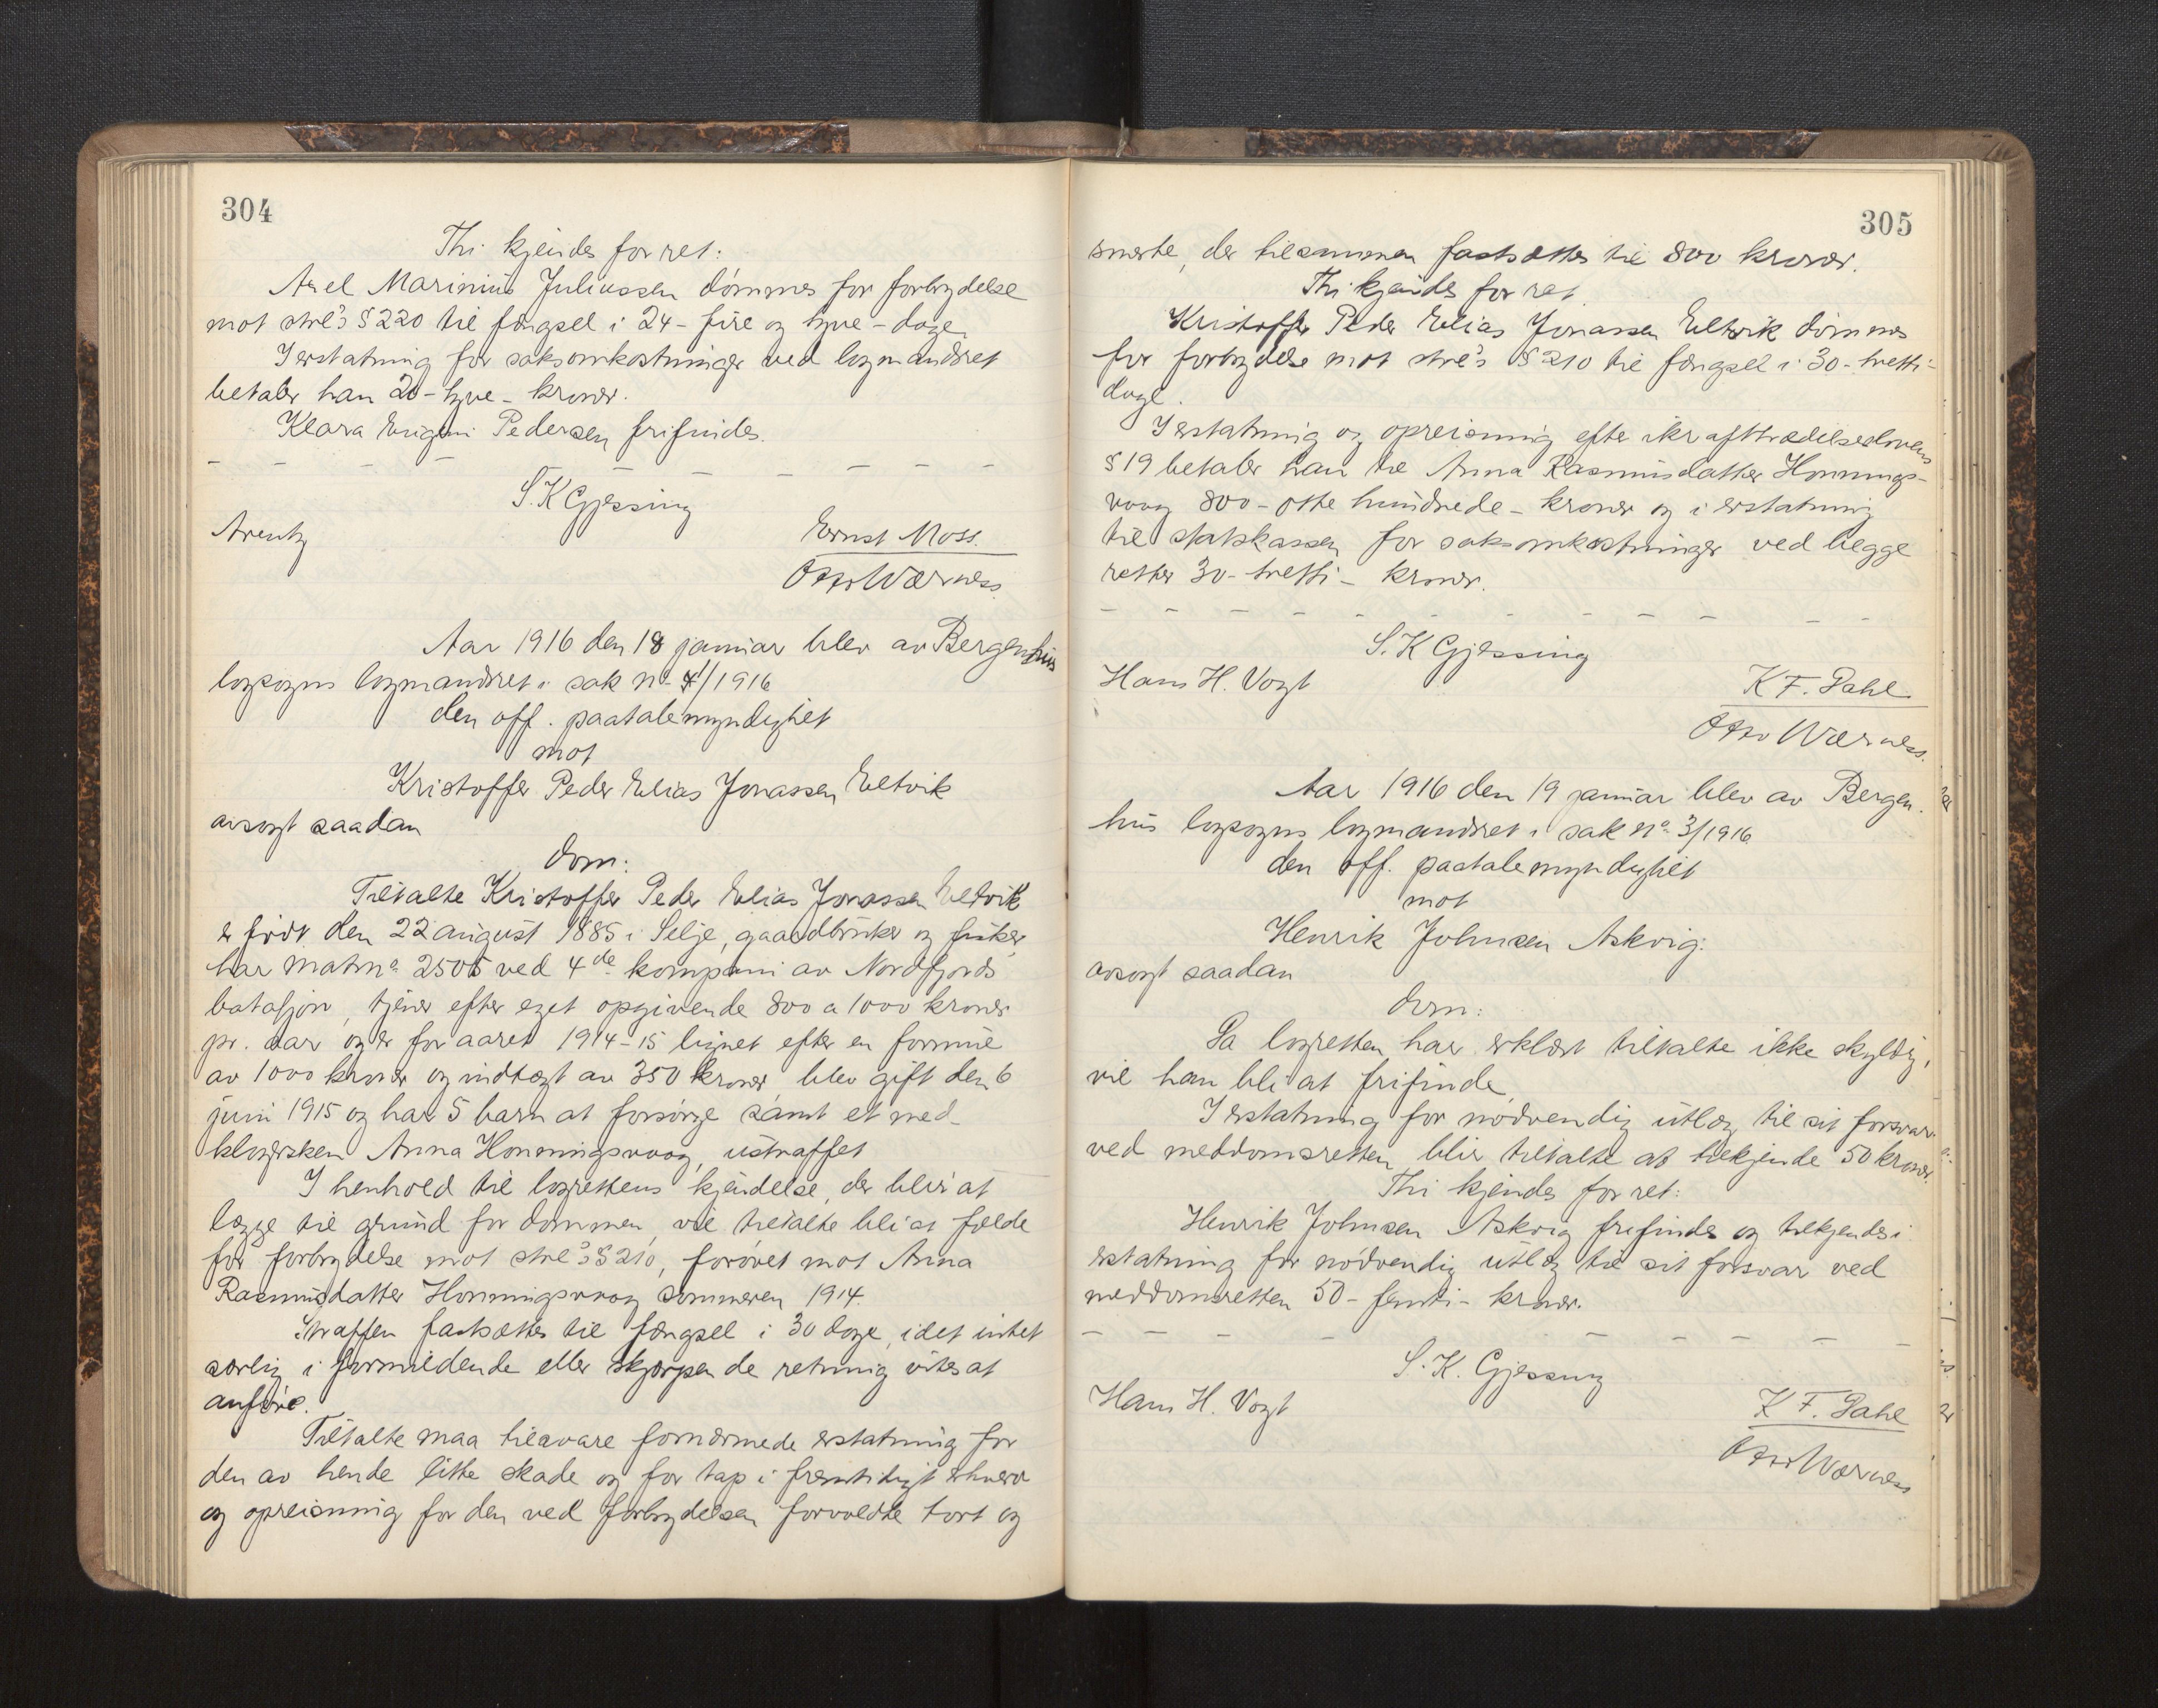 304
Thi kjendes for ret:
Axel Marinius Juliussen dømmes for forbrydelse
mot strl's § 220 til fængsel i 24 - fire og tyve - dage
I erstatning for saksomkostninger ved lagmandsret
betaler han 20 - tyve - kroner.
Klara Eugeni Pedersen frifindes.
S. K Gjessing
Arentz
Ernst Moss.
Otto Wærness.
Aar 1916 den 18 januar blev av Bergenhus
lagsogns lagmandsret i sak no 4/1916
den off. paatalemyndighet
mot
Kristoffer Peder Elias Jonassen Eltvik
avsagt saadan
dom:
Tiltalte Kristoffer Peder Elias Jonassen Eltvik
er født den 22 august 1885 i Selje, gaardbruker og fisker,
har matrno 2505 ved 4de kompani av Nordfjords
bataljon, tjener efter eget opgivende 800 a 1000 kroner
pr. aar og er for aaret 1914-15 lignet efter en formue
av 1000 kroner og indtægt av 350 kroner blev gift den 6
juni 1915 og har 5 barn at forsørge samt et med
klagersken Anna Honningsvaag, ustraffet
I henhold til lagrettens kjendelse, der blir at
lægge til grund for dommen, vil tiltalte bli at fælde
for forbrydelse mot strl's § 210, forøvet mot Anna
Rasmusdatter Honningsvaag sommeren 1914.
Straffen fastsættes til fængsel i 30 dage, idet intet
særlig i formildende eller skjærpende retning vites at
anføre.
Tiltalte maa tilsvare fornærmede erstatning for
den av hende litte skade og for tap i fremtidigt erhverv
og opreisning for den ved forbrydelsen forvoldte tort og
305
smerte, der tilsammen fastsættes til 800 kroner.
Thi kjendes for ret.
Kristoffer Peder Elias Jonassen Eltvik dømmes
for forbrydelse mot strl's § 210 til fængsel i 30 - tretti -
dage.
I erstatning og opreisning efter ikrafttrædelseslovens
§ 19 betaler han til Anna Rasmusdatter Honnings-
vaag 800 - otte hundrede - kroner og i erstatning
til statskassen for saksomkostninger ved begge
retter 30 - tretti - kroner.
S. K Gjessing
Hans H. Vogt
K F. Dahl
Otto Wærness.
Aar 1916 den 19 januar blev av Bergen-
hus lagsogns lagmandsret i sak no 3/1916
den off. paatalemyndighet
mot
Henrik Johnsen Askvig:
avsagt saadan
dom:
Da lagretten har erklært tiltalte ikke skyldig,
vil han bli at frifinde
I erstatning for nødvendig utlæg til sit forsvar
ved meddomsretten blir tiltalte at tilkjende 50 kroner.
Thi kjendes for ret:
Henrik Johnsen Askvig frifindes og tilkjendes i
erstatning for nødvendig utlæg til sit forsvar ved
meddomsretten 50 - femti - kroner.
S. K. Gjessing
Hans H. Vogt
K F. Dahl
Otto Wærness